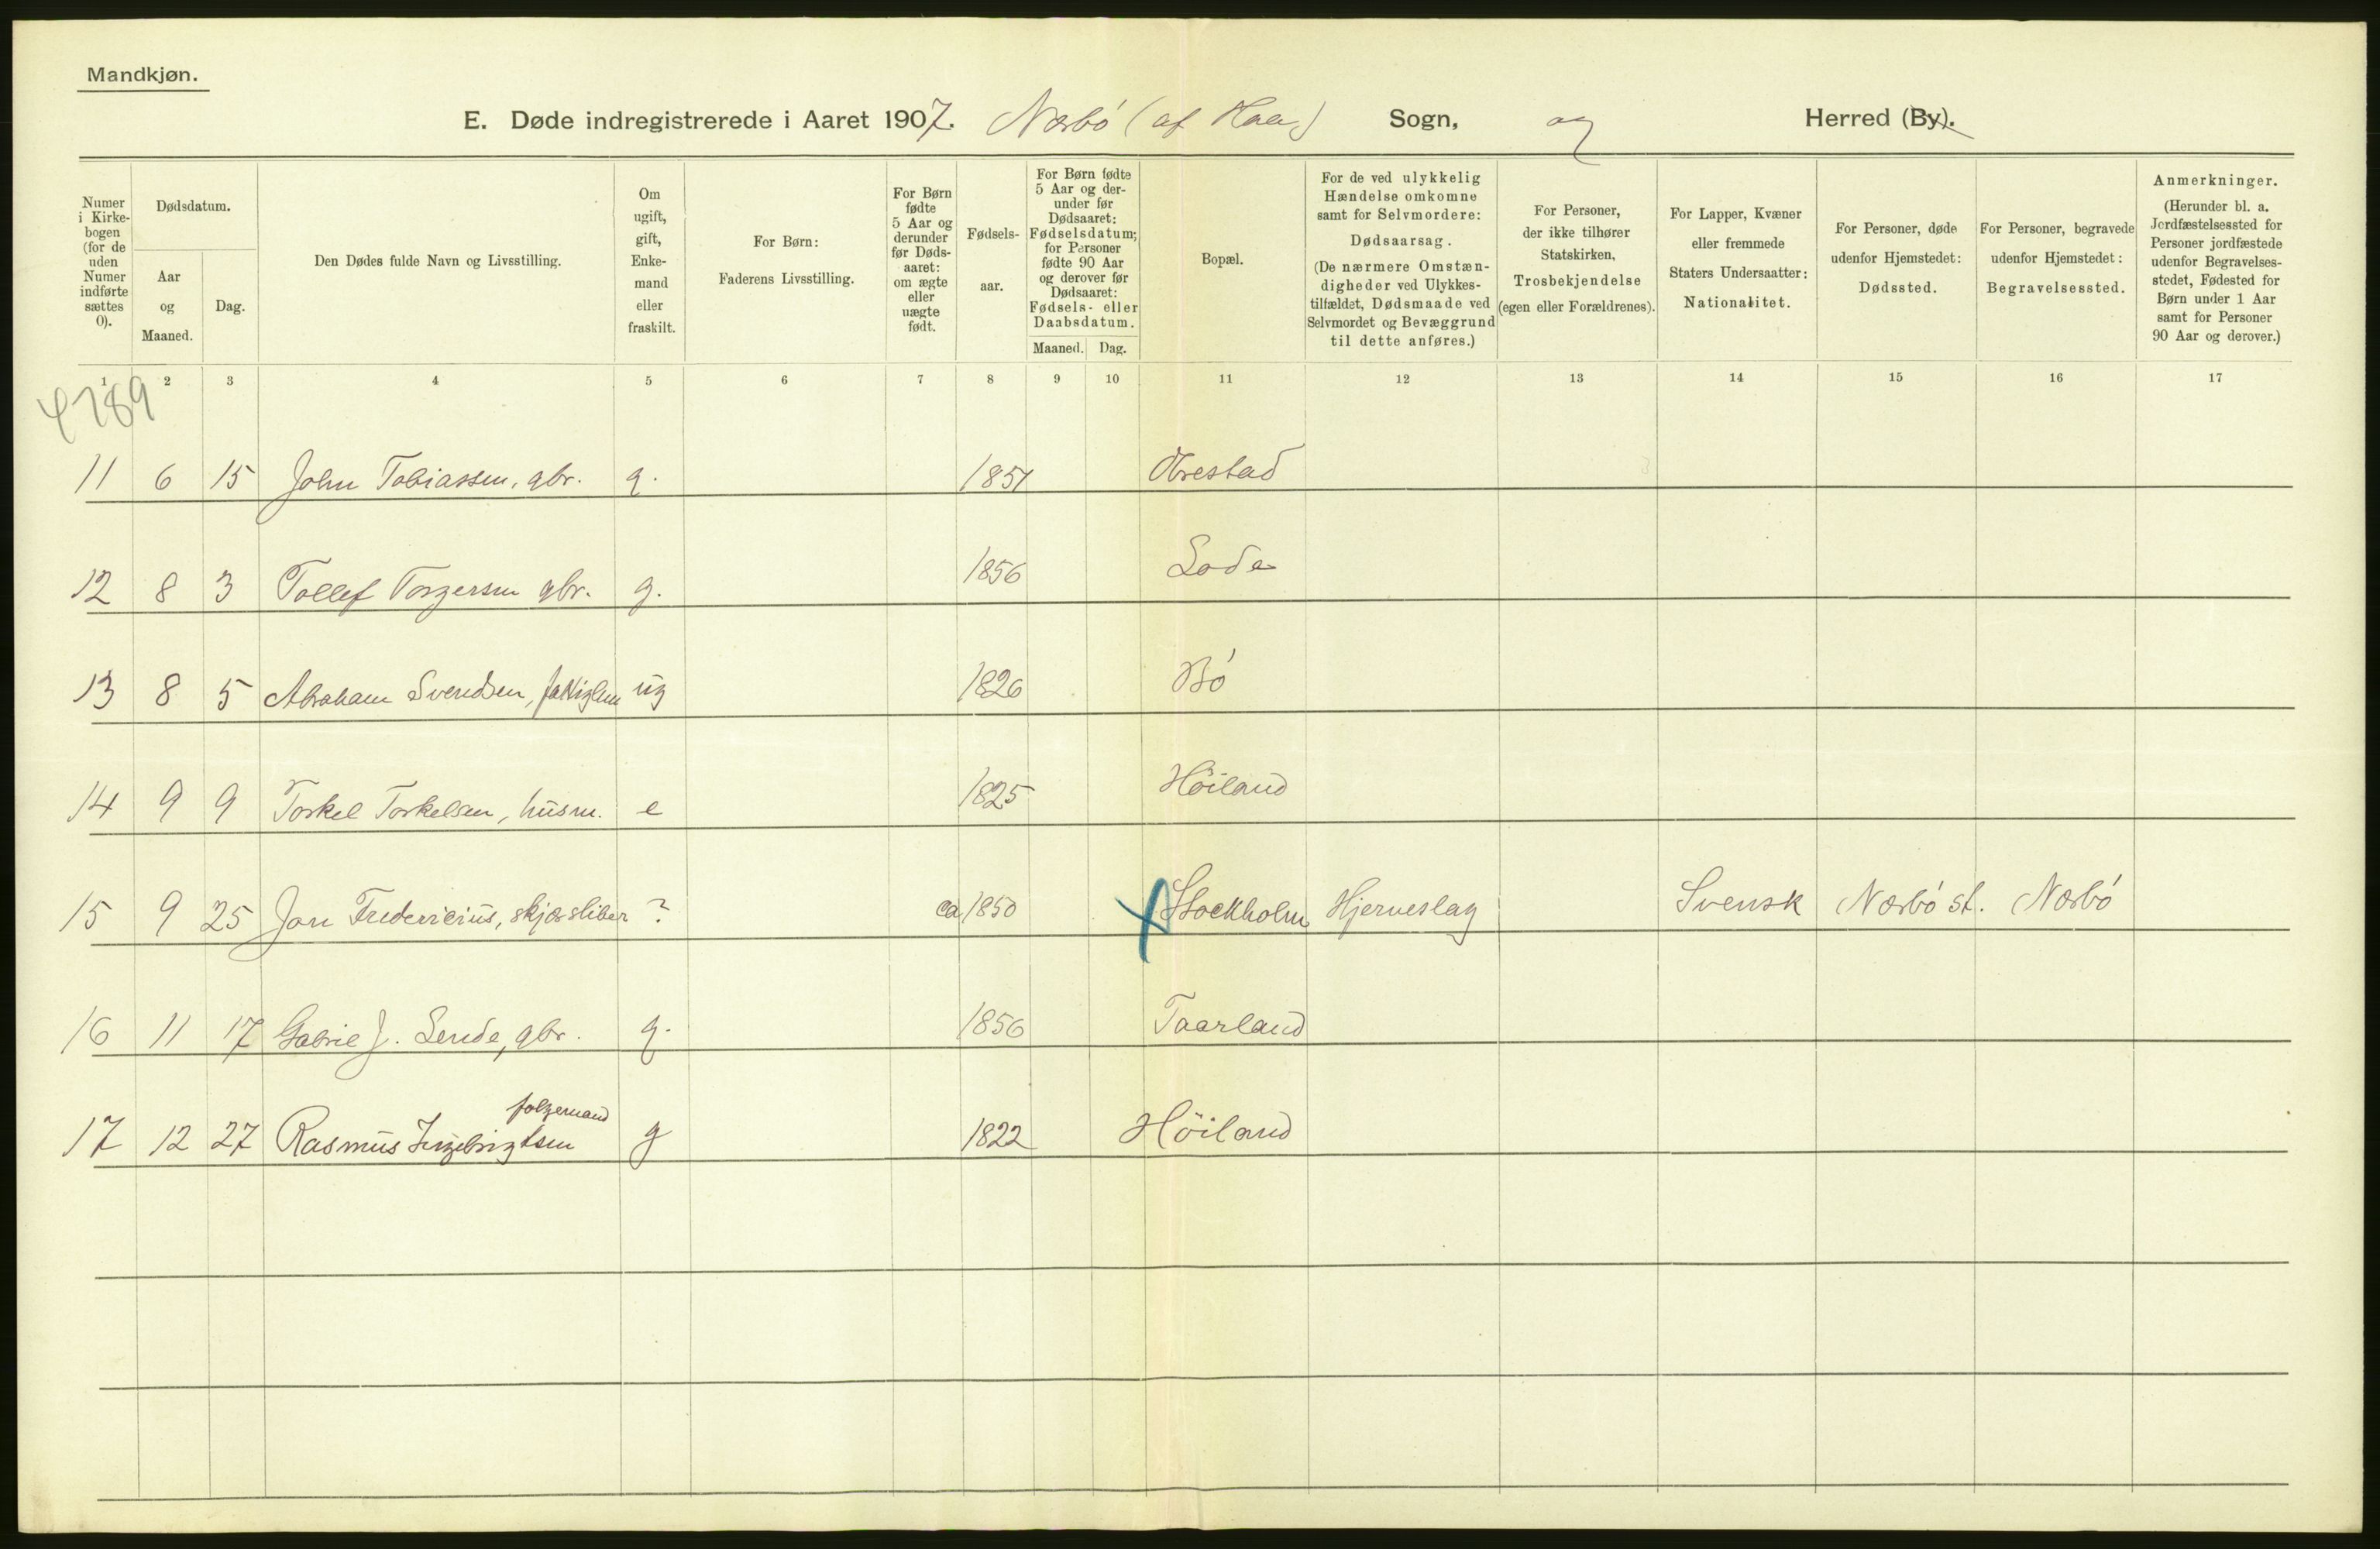 Mandkjøn.
E. Døde indregistrerede i Aaret 1907. Nærbö (af Haa) Sogn, og Herred (By).
Numer i Kirkebogen (for de uden Numer indførte sættes 0).
Dødsdatum.
Aar og Maaned.
Dag.
Den Dødes fulde Navn og Livsstilling.
Om ugift, gift, Enkemand eller fraskilt.
For Børn: Faderens Livsstilling.
For Børn fødte 5 Aar og derunder før Dødsaaret: om ægte eller uægte født.
Fødselsaar.
For Børn fødte 5 Aar og derunder før Dødsaaret: Fødselsdatum; for Personer fødte 90 Aar og derover før Dødsaaret: Fødsels- eller Daabsdatum.
Maaned. Dag.
Bopæl.
For de ved ulykkelig Hændelse omkomne samt for Selvmordere: Dødsaarsag. (De nærmere Omstændigheder ved Ulykkestilfældet, Dødsmaade ved Selvmordet og Bevæggrund til dette anføres.)
For Personer, der ikke tilhører Statskirken, Trosbekjendelse (egen eller Forældrenes).
For Lapper, Kvæner eller fremmede Staters Undersaatter: Nationalitet.
For Personer, døde udenfor Hjemstedet: Dødssted.
For Personer, begravede udenfor Hjemstedet: Begravelsessted.
Anmerkninger. (Herunder bl. a. Jordfæstelsessted for Personer jordfæstede udenfor Begravelsesstedet, Fødested for Børn under 1 Aar samt for Personer 90 Aar og derover.)
1 2 3 4 5 6 7 8 9 10 11 12 13 14 15 16 17
4789
11 6 15 John Tobiassen, gbr. g. 1851 Obrestad
12 8 3 Tollef Torgersen gbr. g. 1856 Lode
13 8 5 Abraham Svendsen, fattiglem ug 1826 Bö
14 9 9 Torkel Torkelsen, husm. e 1825 Höiland
15 9 25 Jon Fredericius, skjærsliber ? ca 1850 Stockholm Hjerneslag Svensk Nærbö st. Nærbö
16 11 17 Gabriel J. Lende, gbr. g. 1856 Taarland
folgemand
17 12 27 Rasmus Ingebrigtsen g 1822 Höiland